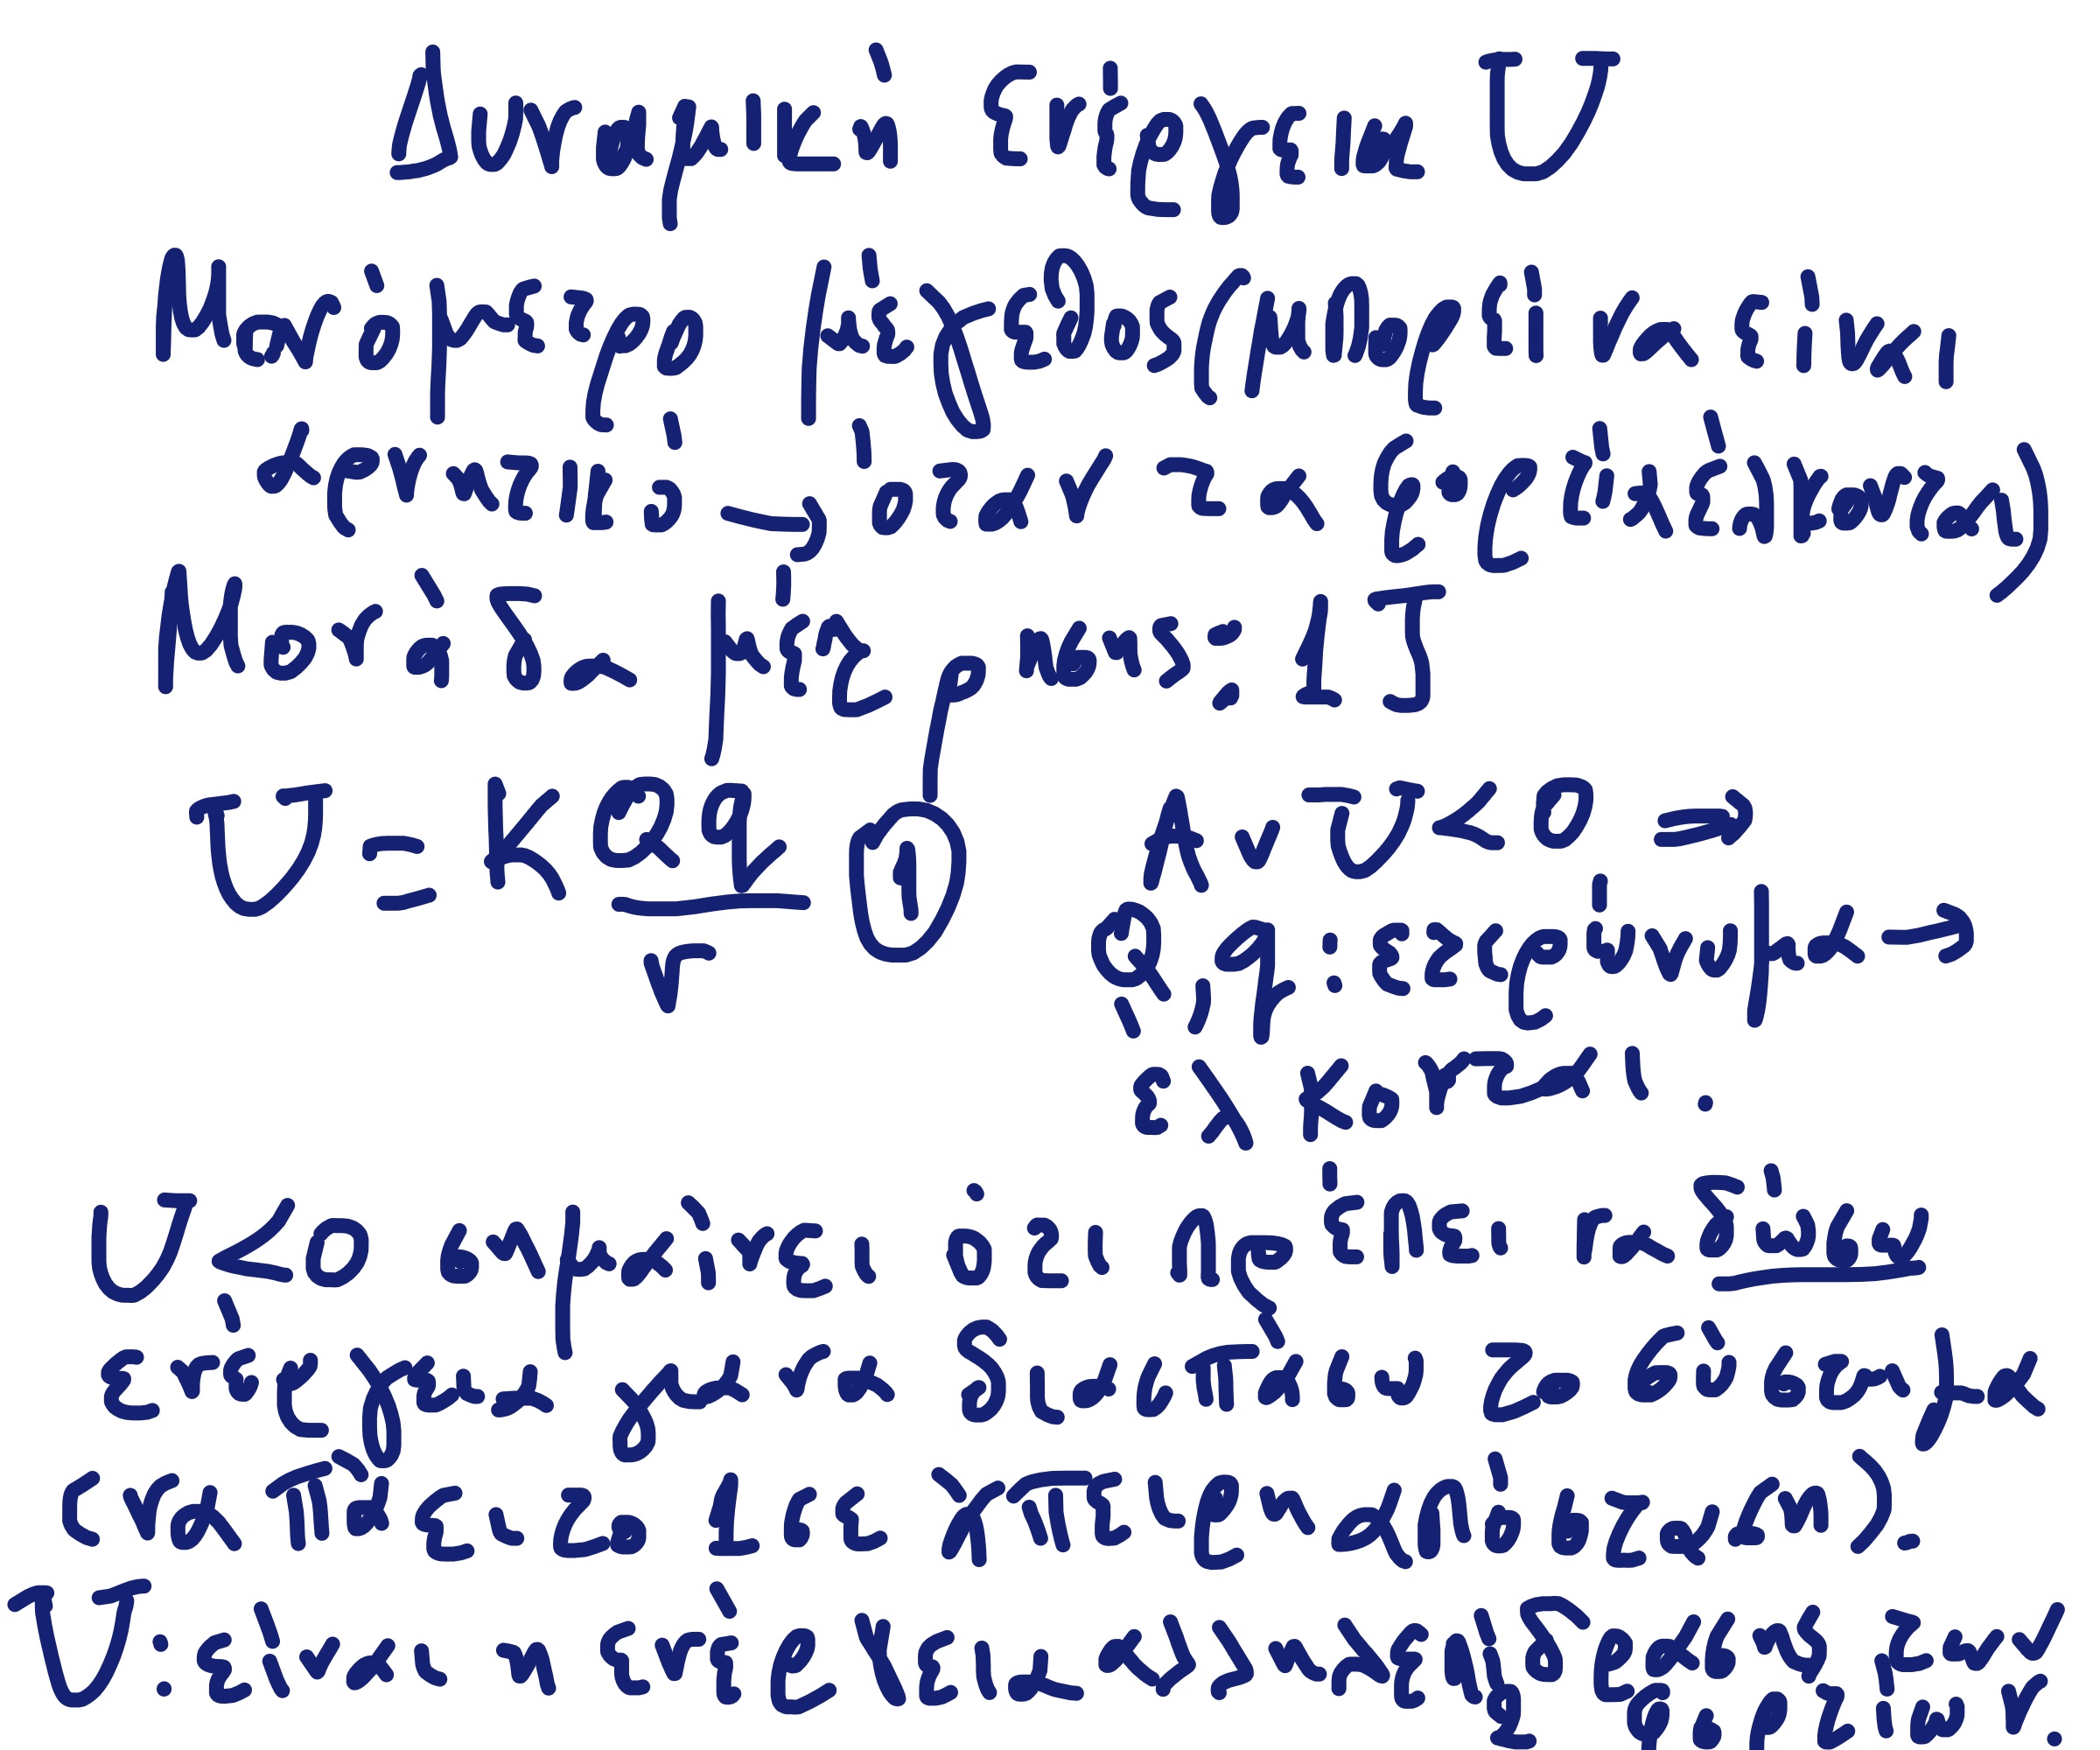 Δυναμική Ενέργεια U
Μονόμετρο μέγεθος (μπορεί να είναι
αρνητικό, όταν τα φορτία είναι ετερόσημα)
Μονάδα μέτρησης: 1 J
U = K Q q / r ① Αν U < 0 ⇒
Q, q: ετερόνυμα →
έλκονται.
U<0 σημαίνει ότι πρέπει να δώσω
ενέργεια για να διασπάσω το σύστημα
(να πάει το 1 σε άπειρη απόσταση).
U: είναι η ενέργεια αλληλεπίδρασης των
φορτίων.